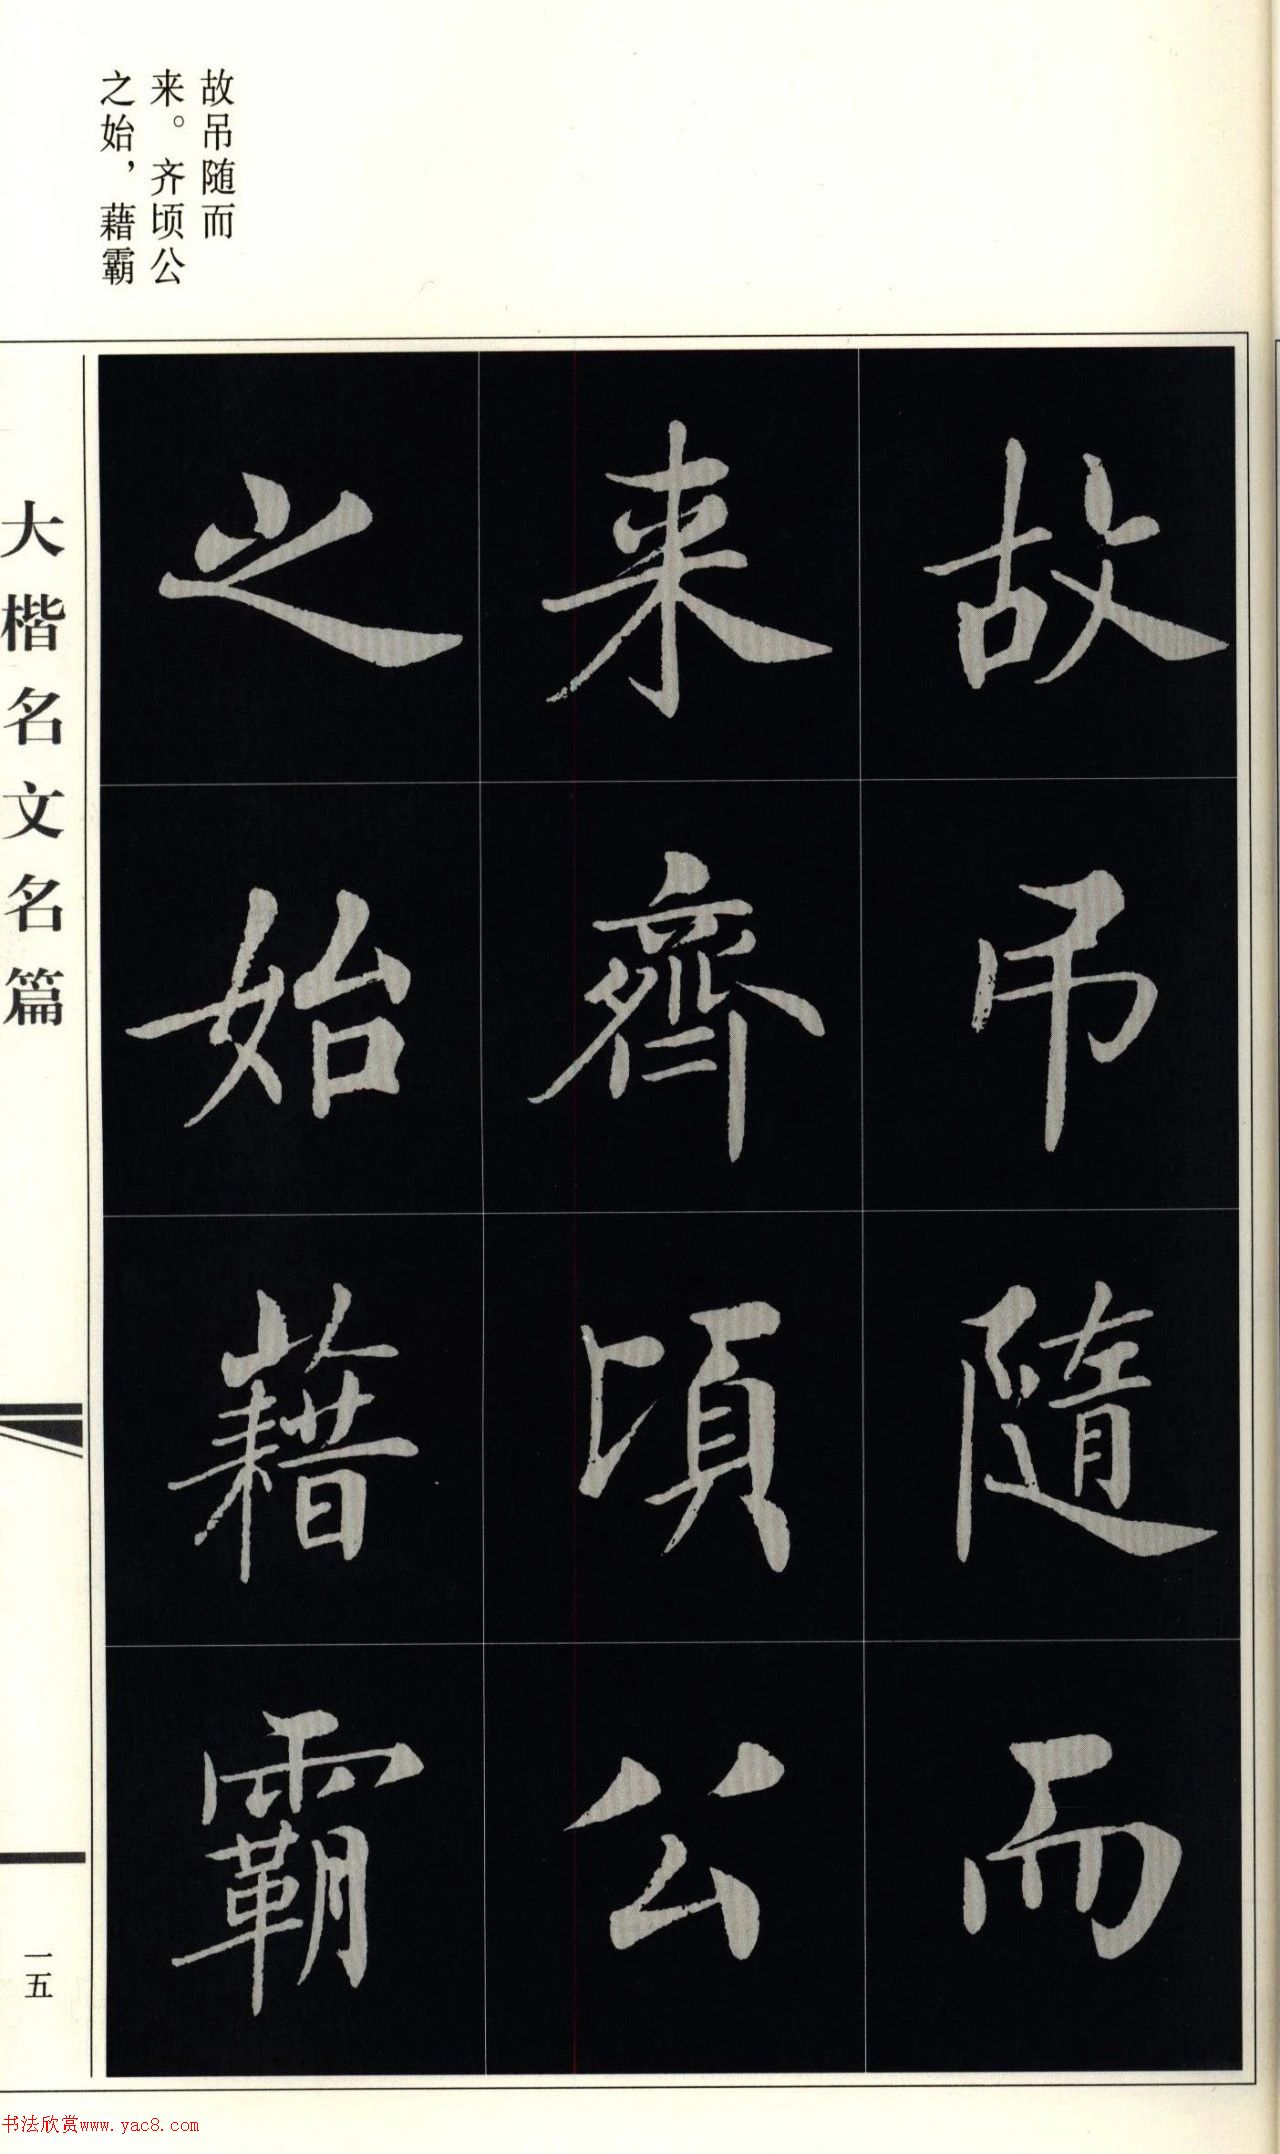 故吊随而
来。齐顷公
之始，藉霸
故吊隨而
来齊頃公
之始藉霸
大楷名文名篇
一五
书法欣赏www.yac8.com